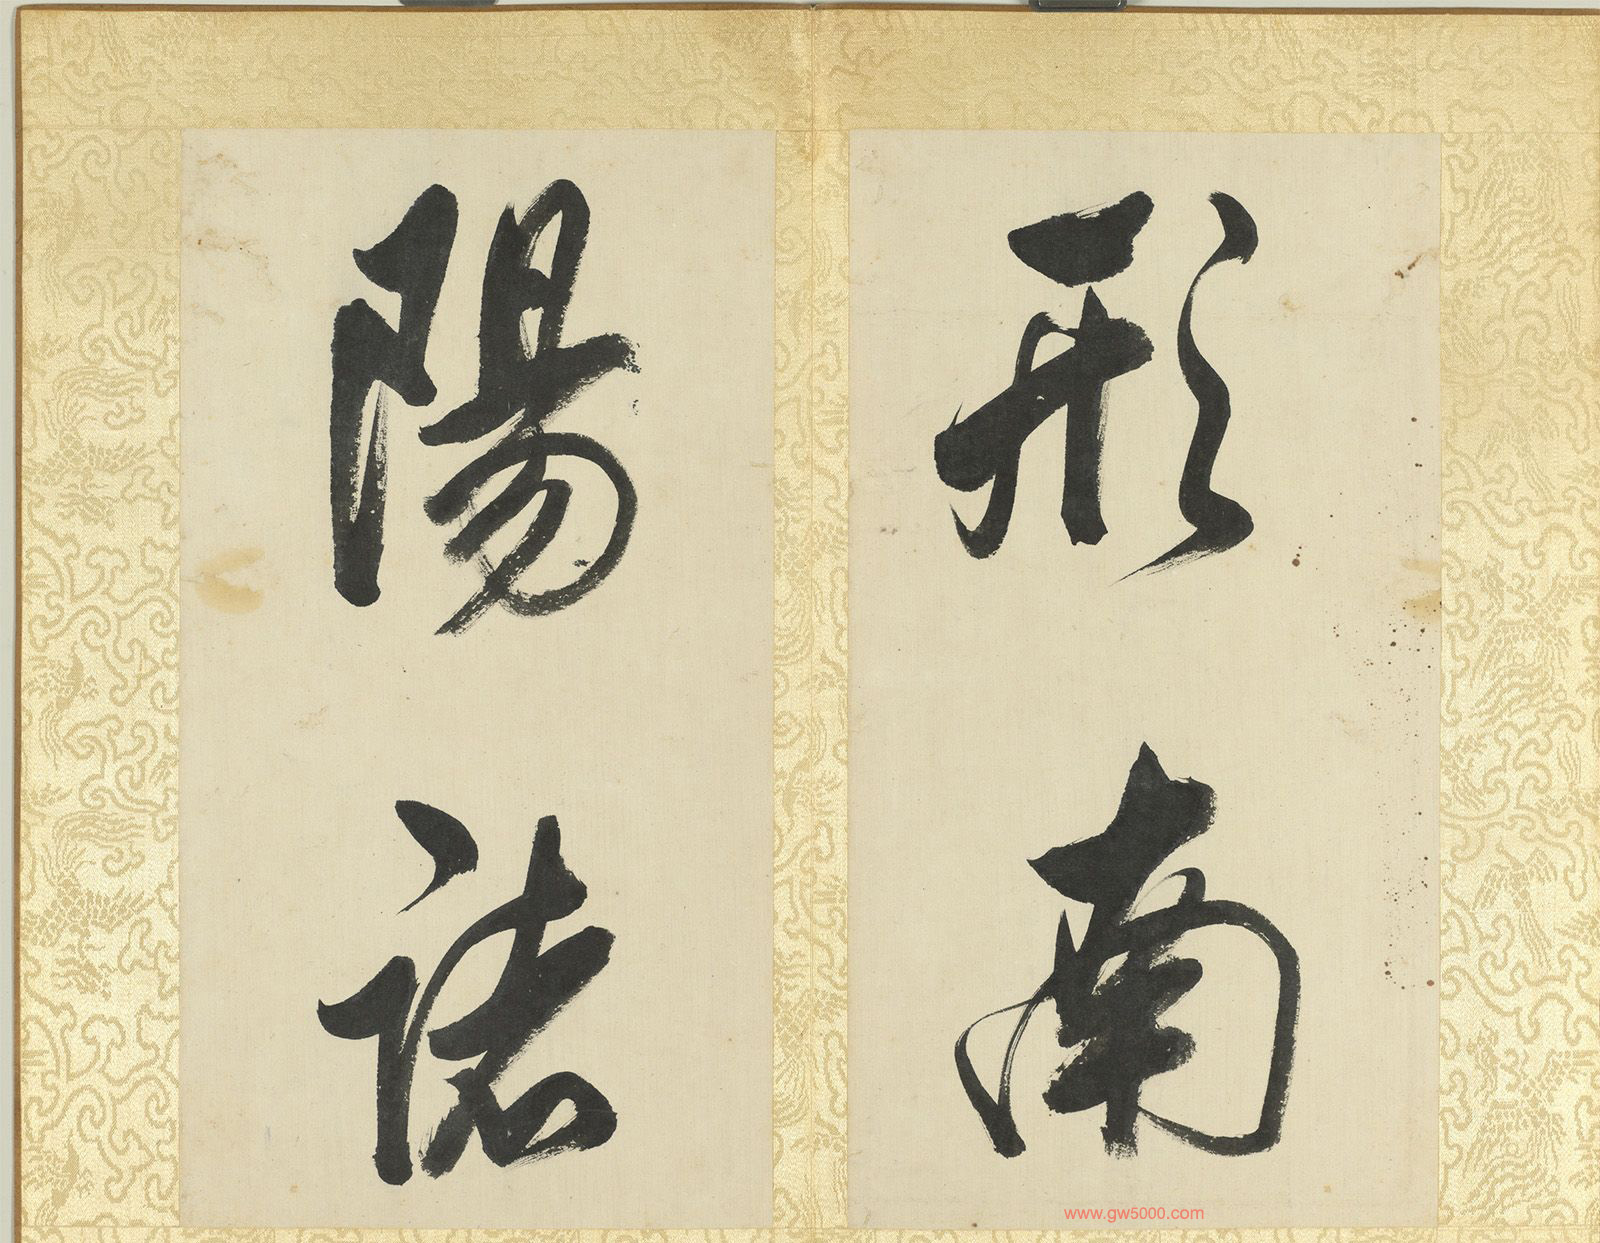 形南
陽諸
www.gw5000.com